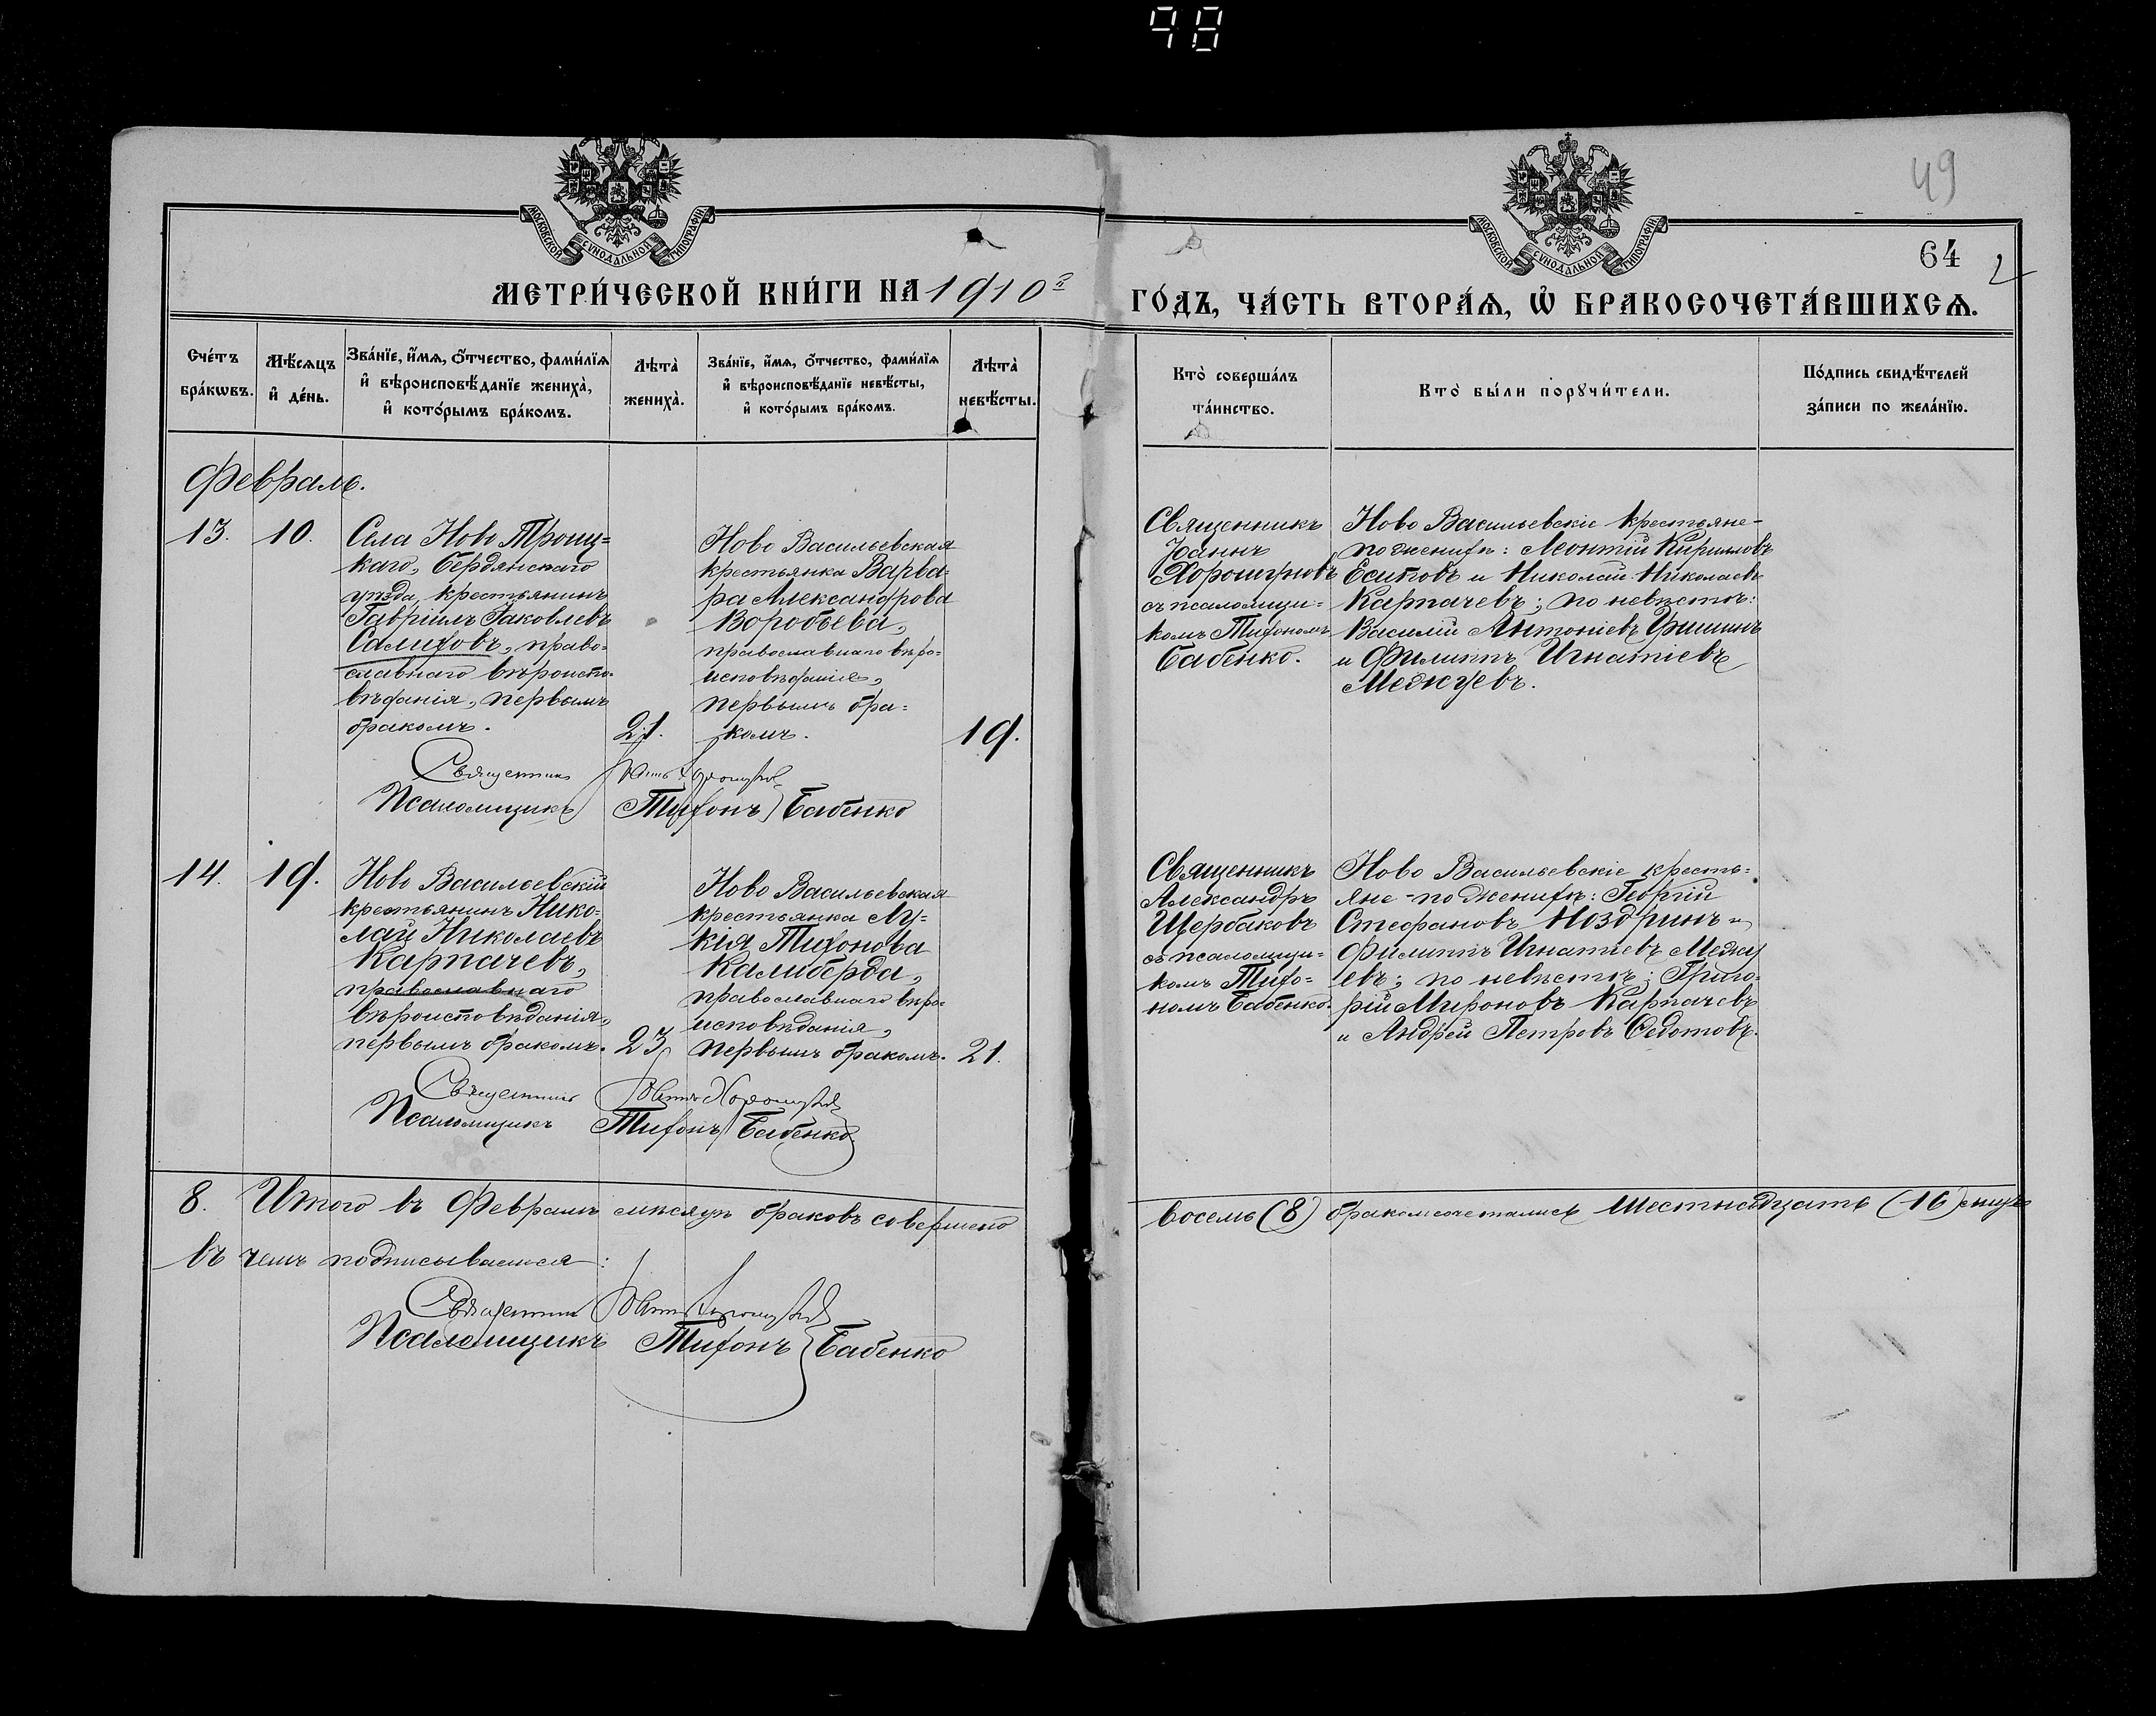 98
49
64
МОСКОВСКОЙ СѴНОДАЛЬНОЙ ТИПОГРАФІИ
МОСКОВСКОЙ СѴНОДАЛЬНОЙ ТИПОГРАФІИ
МЕТРИ́ЧЕСКОЙ КНИ́ГИ НА 1910 г
ГО́ДЪ, ЧА́СТЬ ВТОРА́Ѧ, Ѡ҆ БРАКОСОЧЕТА́ВШИХСѦ.
Сче́тъ бра́кѡвъ.
Мѣ́сѧцъ и҆ де́нь.
Зва́нїе, и҆́мѧ, ѻ҆́тчество, фами́лїѧ и҆ вѣроисповѣ́данїе жениха̀, и҆ кото́рымъ бра́комъ.
Лѣта̀ жениха̀.
Зва́нїе, и҆́мѧ, ѻ҆́тчество, фами́лїѧ и҆ вѣроисповѣ́данїе невѣ́сты, и҆ кото́рымъ бра́комъ.
Лѣта̀ невѣ́сты.
Кто̀ соверша́лъ та́инство.
Кто̀ бы́ли порꙋчи́тели.
По́дпись свидѣ́телей за́писи по жела́нїю.
Февраль.
13. 10.
Села Ново Троиц=
каго, Бердянскаго
уѣзда, крестьянинъ
Гавріилъ Іаковлевъ
Салиховъ, право-
славнаго вѣроиспо-
вѣданія, первымъ
бракомъ.
21.
Ново Васильевская
крестьянка Варва-
ра Александрова
Воробьева,
православнаго вѣро-
исповѣданія,
первымъ бра=
комъ.
19.
Священникъ
Іоаннъ
Хорошуновъ
съ псаломщи=
комъ Тихономъ
Бабенко.
Ново Васильевскіе крестьяне-
по женихѣ: Леонтій Кирилловъ
Еситовъ и Николай Николаевъ
Карпачевъ; по невѣстѣ:
Василій Антоніевъ
и Филиппъ Игнатіевъ
Межуевъ.
Священникъ
Псаломщикъ Тихонъ Бабенко
14. 19.
Ново Васильевскій
крестьянинъ Нико=
лай Николаевъ
Карпачевъ,
православнаго
вѣроисповѣданія,
первымъ бракомъ.
23
Ново Васильевская
крестьянка Лу=
кія Тихонова
Калиберда,
православнаго вѣро-
исповѣданія,
первымъ бракомъ.
21.
Священникъ
Александръ
Щербаковъ
съ псаломщи=
комъ Тихо=
номъ Бабенко.
Ново Васильевскіе кресть=
яне - по женихѣ: Георгій
Стефановъ Ноздринъ и
Филиппъ Игнатіевъ Межу
евъ; по невѣстѣ: Григо=
рій Мироновъ Карпачевъ
и Андрей Петровъ Федотовъ.
Священникъ
Псаломщикъ Тихонъ Бабенко
8. Итого въ Февралѣ мѣсяцѣ браковъ совершено
восемь (8) бракомсочетались шестнадцать (16) лицъ
въ чемъ подписываемся:
Священникъ
Псаломщикъ Тихонъ Бабенко